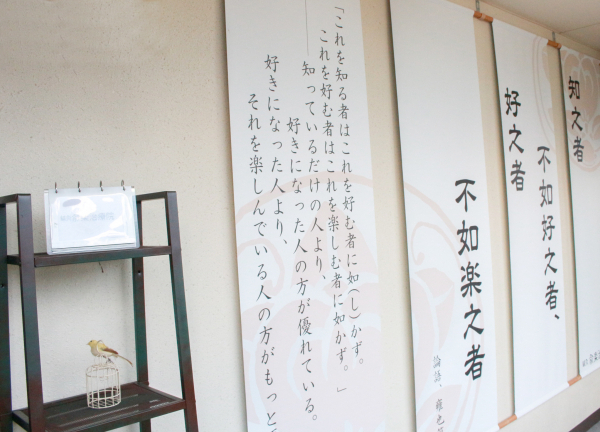 知之者
不如好之者、
好之者
不如楽之者
論語、雍也
「これを知る者はこれを好む者に如(し)かず。
これを好む者はこれを楽しむ者に如かず。」
――知っているだけの人より、
好きになった人の方が優れている。
好きになった人より、
それを楽しんでいる人の方がもっと